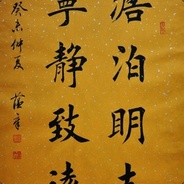 澹泊明志
寧靜致遠
癸未仲夏